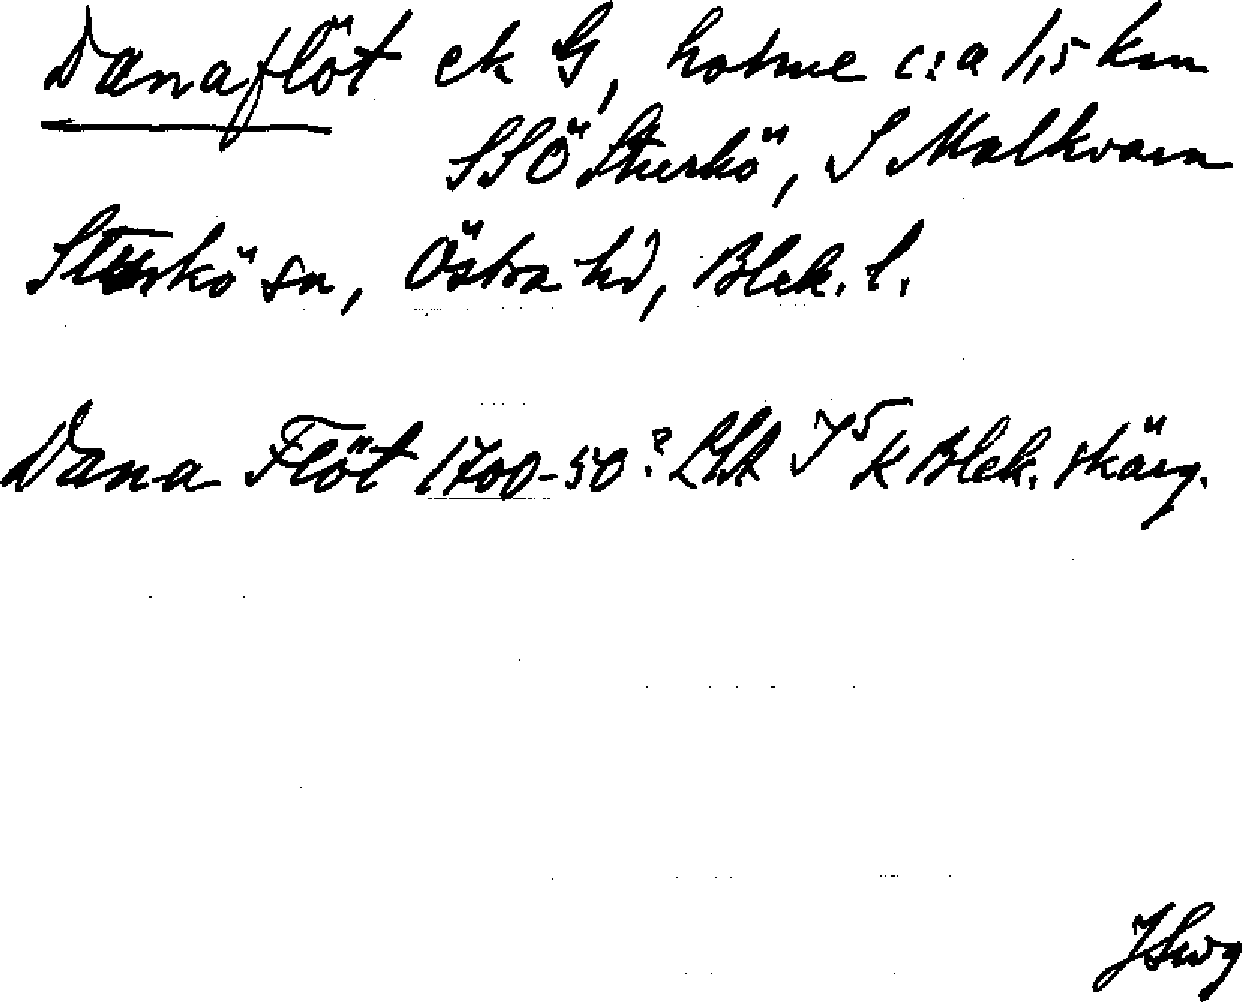 Danaflöt ek G, holme c:a 1,5 km
SSÖ Sturkö, S Malkvarn
Sturkö sn, Östra hd, Blek. l.
Dana Flöt 1700-50? LSA I⁵ K Blek. skärg.